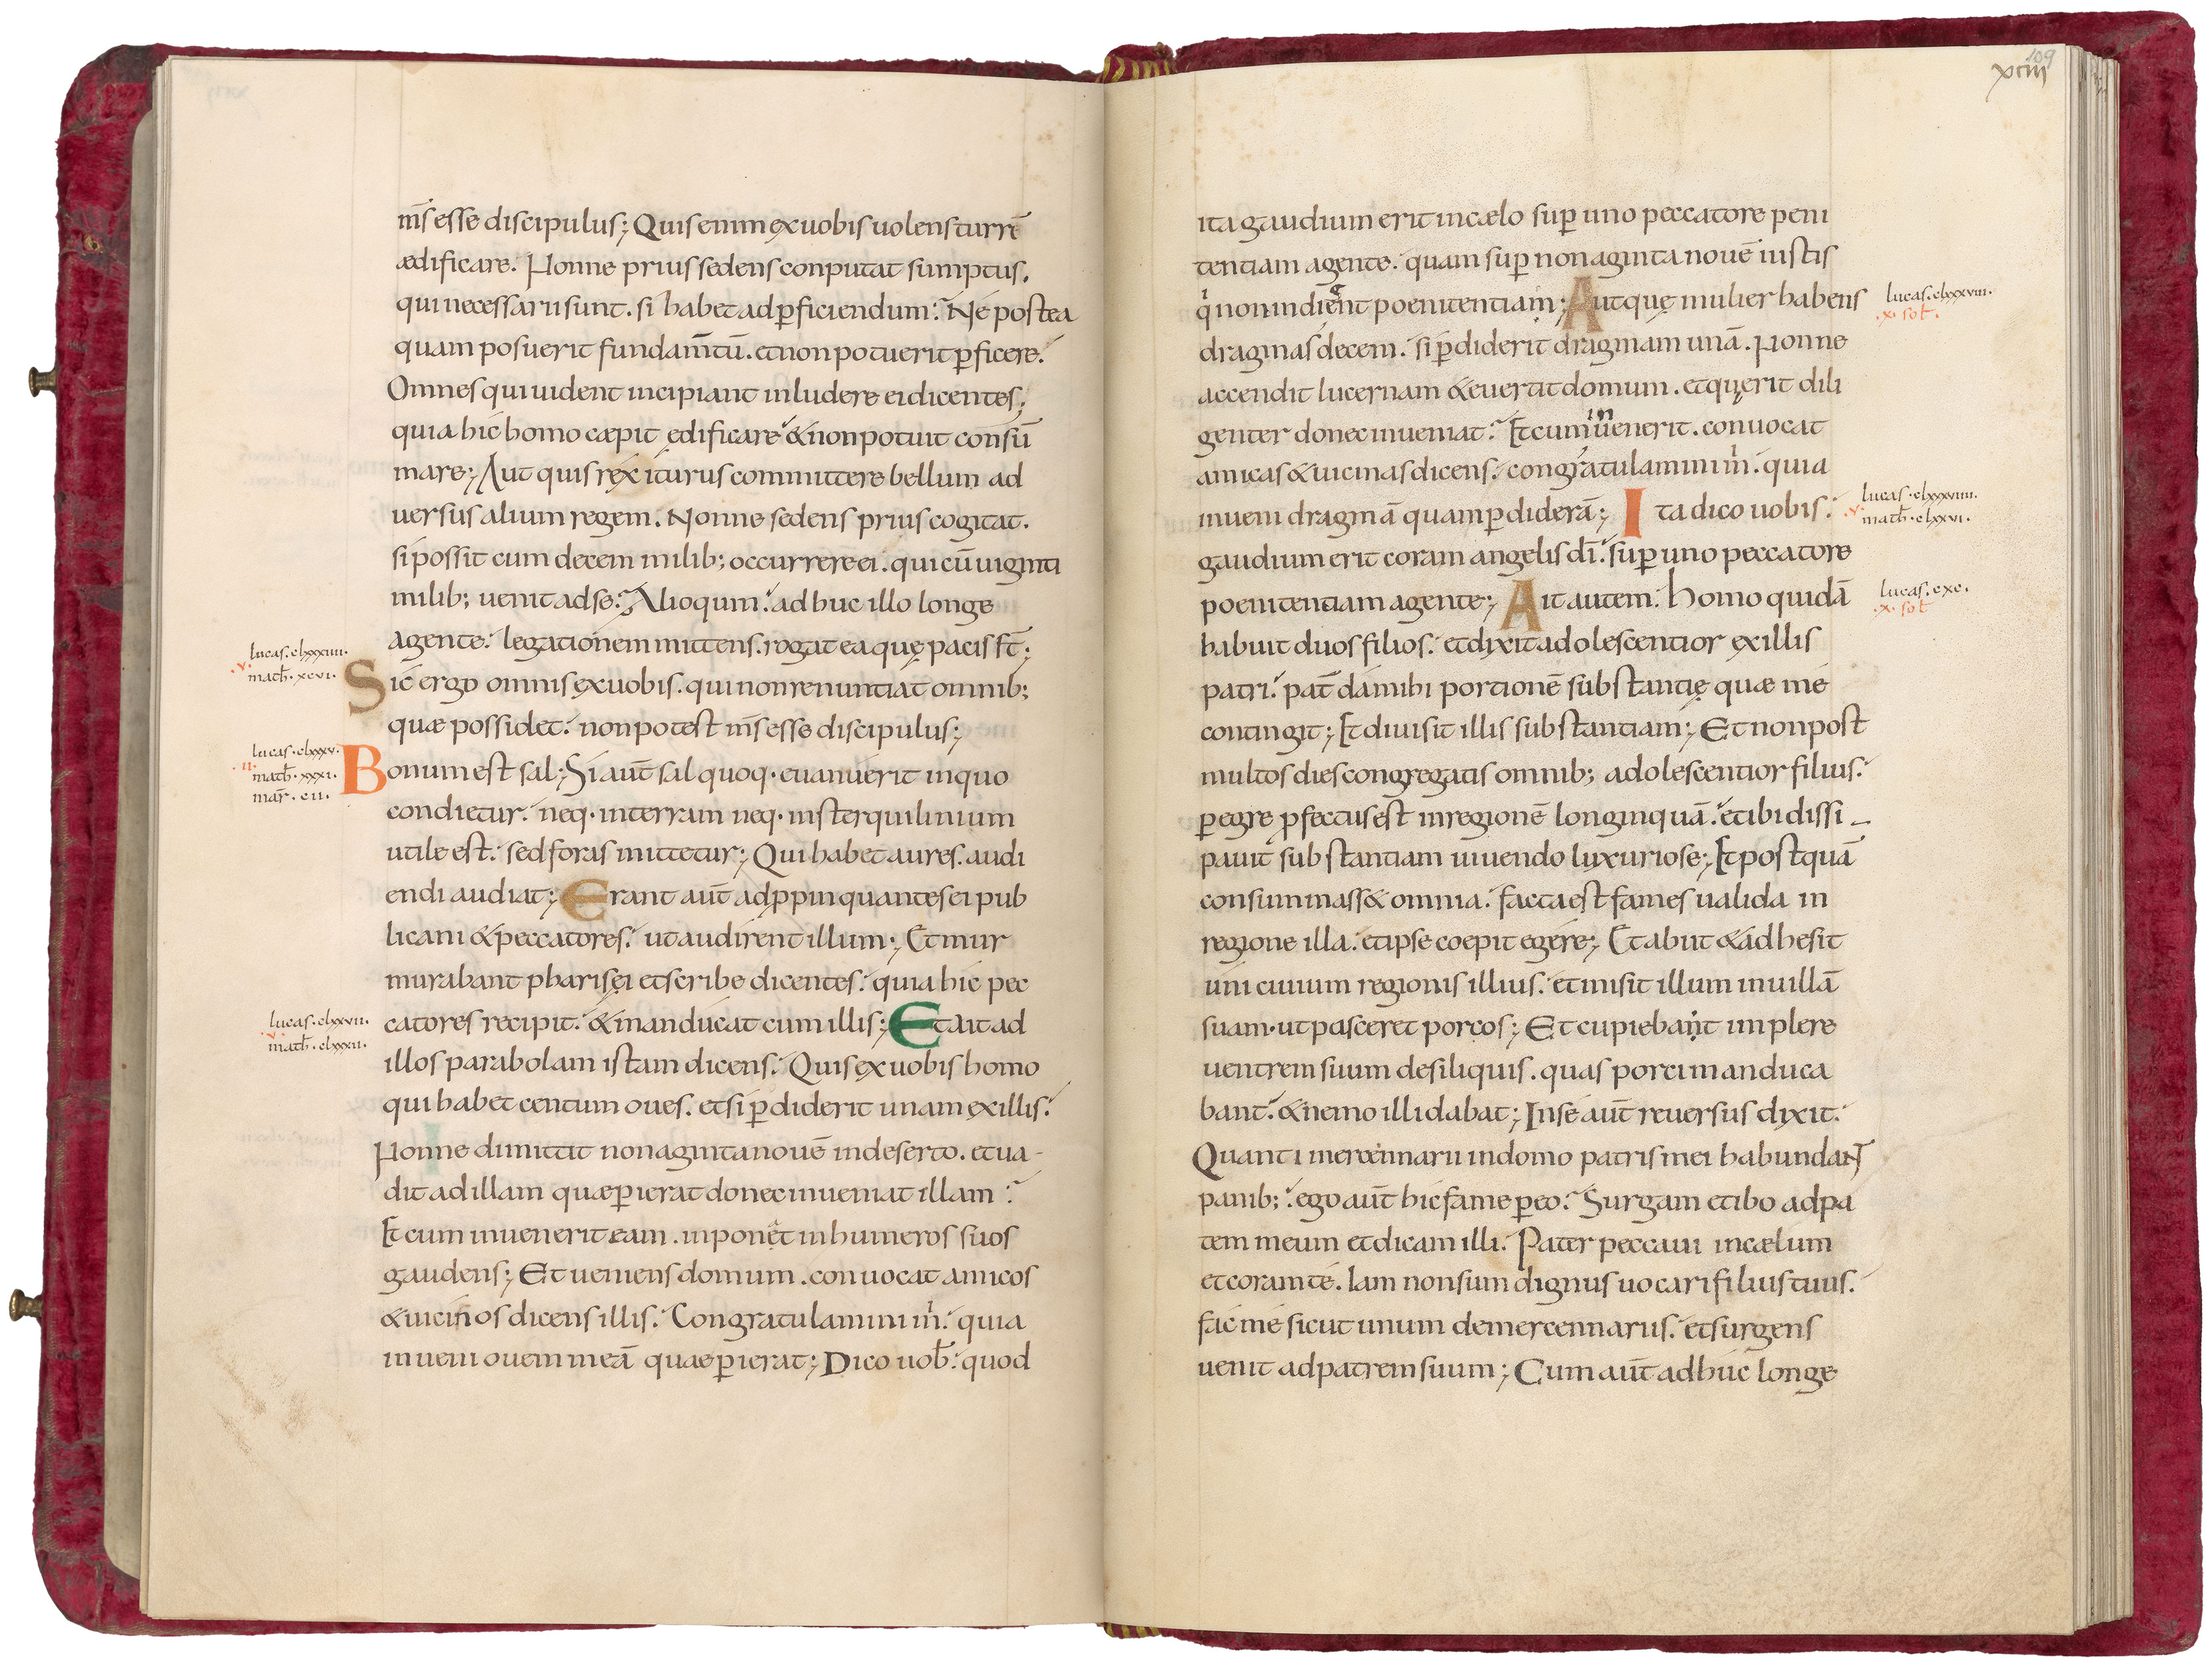 m̄s esse discipulus; Quis enim ex uobis uolens turrē
ædificare. Nonne prius sedens conputat sumptus.
qui necessarii sunt. si habet ad ꝑficiendum. Ne postea
quam posuerit fundam̄tū. et non potuerit ꝑficere.
Omnes qui uident incipiant inludere ei dicentes;
quia hic homo cæpit ędificare & non potuit consū
mare; Aut quis rex iturus committere bellum ad
uersus alium regem. Nonne sedens prius cogitat.
si possit cum decem milib; occurrere ei. qui cū uiginti
milib; uenit ad se. Alioquin. adhuc illo longe
agente. legationem mittens. rogat ea quę pacis st̄;
lucas. clxxxiiii.
.v.
math̄. xcvi.
Sic ergo omnis ex uobis. qui non renuntiat omnib;
quæ possidet. non potest m̄s esse discipulus;
lucas. clxxxv.
.ii.
math̄. xxxi.
mar̄. cii.
Bonum est sal; Si aūt sal quoq. euanuerit in quo
condietur. neq. in terram neq. in sterquilinium
utile est. sed foras mittetur; Qui habet aures. audi
endi audiat; Erant aūt adꝓpinquantes ei pub
licani & peccatores. ut audirent illum; Et mur
murabant pharisęi et scribe dicentes. quia hic pec
lucas. clxxvii.
.v.
math̄. clxxxii.
catores recipit. & manducat cum illis; Et ait ad
illos parabolam istam dicens. Quis ex uobis homo
qui habet centum oues. et si ꝑdiderit unam ex illis.
Nonne dimittit nonaginta nouē in deserto. et ua-
dit ad illam quæ ꝑierat donec inueniat illam.
Et cum inuenerit eam. inponit in humeros suos
gaudens; Et ueniens domum. conuocat amicos
& uicinos dicens illis. Congratulamini m̄ⁱ. quia
inueni ouem meā quae ꝑierat; Dico uob̄. quod
109
xciii
ita gaudium erit in cælo suꝑ uno peccatore peni
tentiam agente. quam suꝑ nonaginta nouē iustis
qⁱ non indigent poenitentiam; Aut quę mulier habens
lucas. clxxxviii.
.x. sol̄.
dragmas decem. si ꝑdiderit dragmam unā. Nonne
accendit lucernam & euertit domum. et quęrit dili
genter donec inueniat. Et cum inuenerit. conuocat
amicas & uicinas dicens. congratulamini m̄ⁱ. quia
inueni dragmā quam ꝑdiderā; Ita dico uobis.
lucas. clxxxviiii.
.v.
math̄. clxxvi.
gaudium erit coram angelis dī. suꝑ uno peccatore
poenitentiam agente; Ait autem. homo quidā
lucas. cxc.
.x. sol̄
habuit duos filios. et dixit adolescentior ex illis
patri. pat̄ da mihi portionē substantię quæ me
contingit; Et diuisit illis substantiam; Et non post
multos dies congregatis omnib; adolescentior filius.
ꝑegre ꝓfectus est in regionē longinquā. et ibi dissi-
pauit substantiam uiuendo luxuriose; Et postquā
consummass& omnia. facta est fames ualida in
regione illa. et ipse coepit egere; Et abiit & adhesit
uni ciuium regionis illius. et misit illum in uillā
suam. ut pasceret porcos; Et cupiebant implere
uentrem suum de siliquis. quas porci manduca
bant. & nemo illi dabat; In se aūt reuersus dixit.
Quanti mercennarii in domo patris mei habundant
panib;. ego aūt hic fame ꝑeo. Surgam et ibo ad pa
tem meum et dicam illi. Pater peccaui in cælum
et coram te. Iam non sum dignus uocari filius tuus.
fac me sicut unum de mercennariis. et surgens
uenit ad patrem suum; Cum aūt adhuc longe